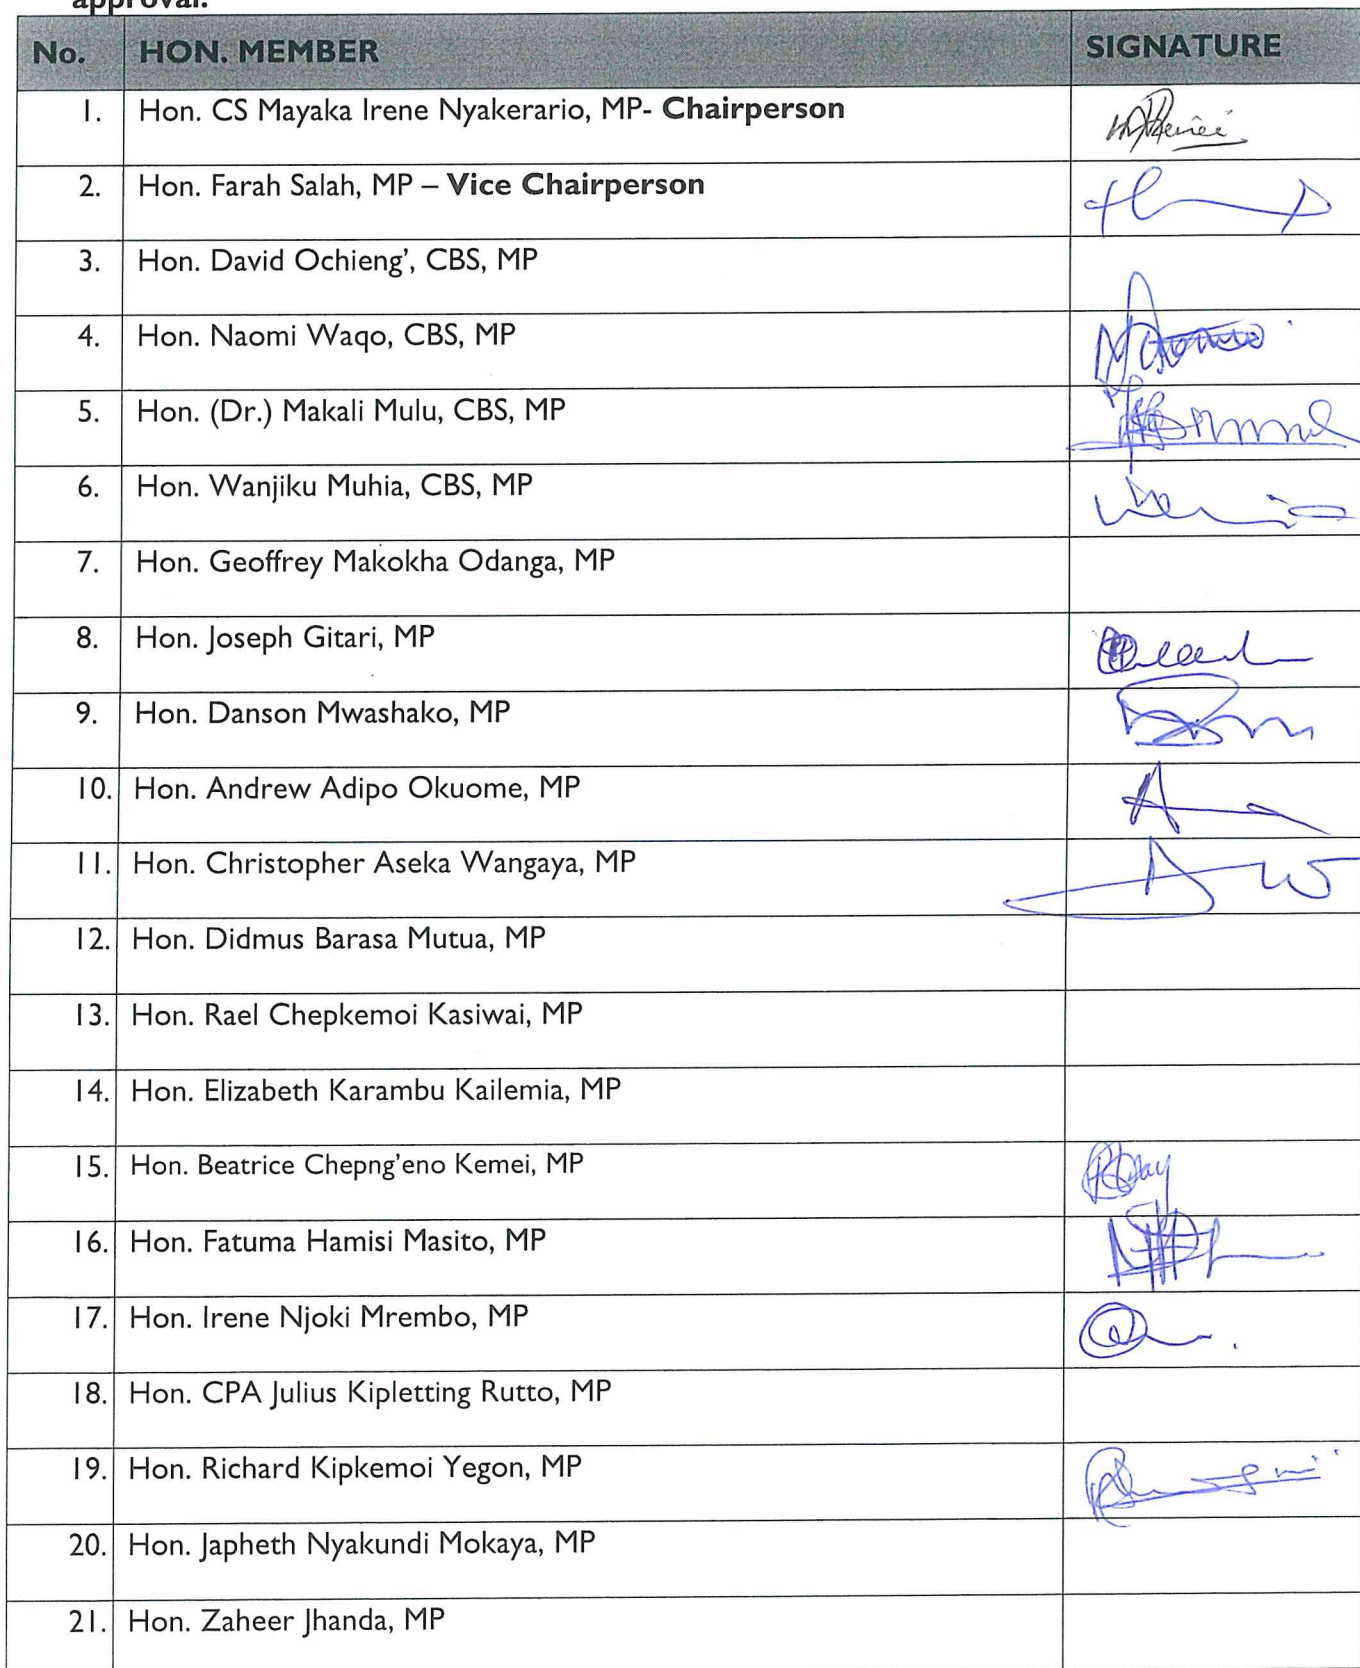 approval.
No. HON. MEMBER SIGNATURE
1. Hon. CS Mayaka Irene Nyakerario, MP- Chairperson
2. Hon. Farah Salah, MP – Vice Chairperson
3. Hon. David Ochieng', CBS, MP
4. Hon. Naomi Waqo, CBS, MP
5. Hon. (Dr.) Makali Mulu, CBS, MP
6. Hon. Wanjiku Muhia, CBS, MP
7. Hon. Geoffrey Makokha Odanga, MP
8. Hon. Joseph Gitari, MP
9. Hon. Danson Mwashako, MP
10. Hon. Andrew Adipo Okuome, MP
11. Hon. Christopher Aseka Wangaya, MP
12. Hon. Didmus Barasa Mutua, MP
13. Hon. Rael Chepkemoi Kasiwai, MP
14. Hon. Elizabeth Karambu Kailemia, MP
15. Hon. Beatrice Chepng'eno Kemei, MP
16. Hon. Fatuma Hamisi Masito, MP
17. Hon. Irene Njoki Mrembo, MP
18. Hon. CPA Julius Kipletting Rutto, MP
19. Hon. Richard Kipkemoi Yegon, MP
20. Hon. Japheth Nyakundi Mokaya, MP
21. Hon. Zaheer Jhanda, MP